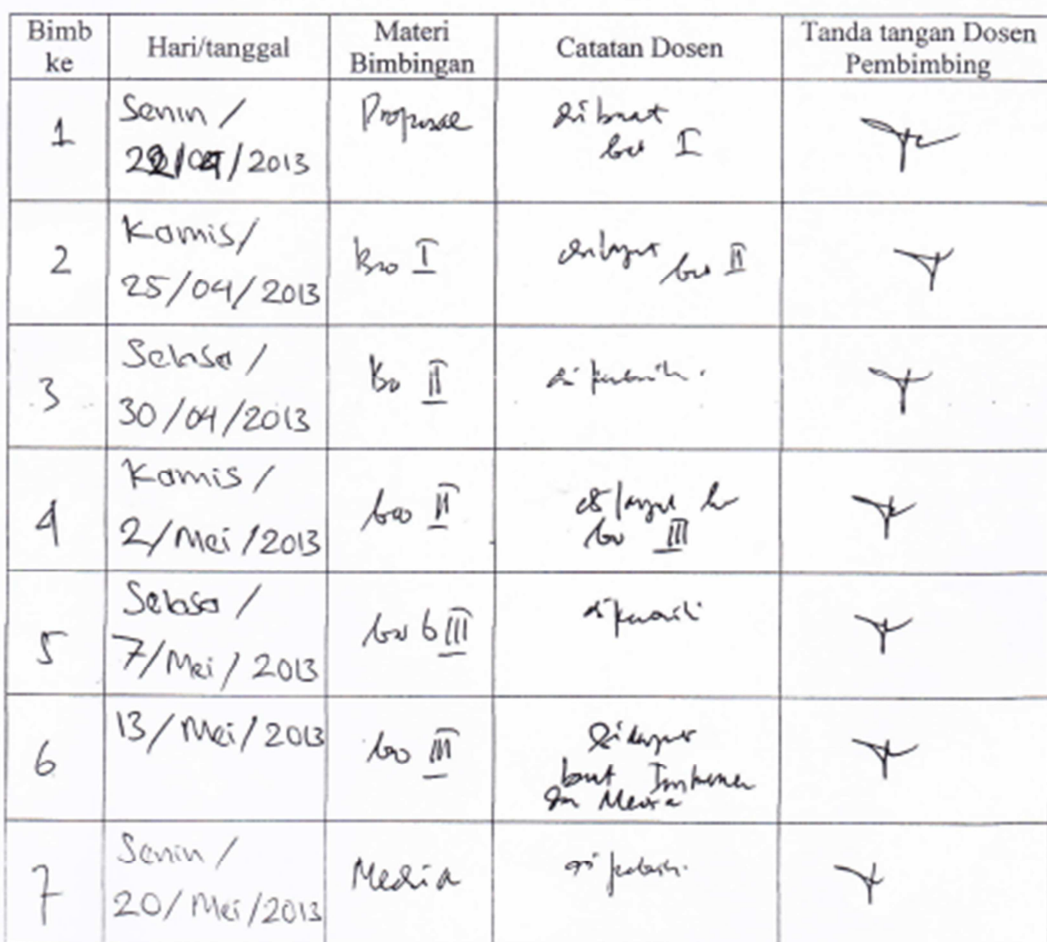 Bimb ke
Hari/tanggal
Materi Bimbingan
Catatan Dosen
Tanda tangan Dosen Pembimbing
1
Senin /
/2013
Proposal
dibuat
bab I
2
Kamis/
25/04/2013
Bab I
dilanjut bab II
3
Selasa /
30/04/2013
Bab II
diperbaiki.
4
Kamis /
2/Mei/2013
bab II
dilanjut ke
bab III
5
Selasa /
7/Mei/2013
bab III
diperbaiki
6
13/Mei/2013
bab III
buat Instrumen
dan Media
7
Senin /
20/Mei/2013
Media
diperbaiki.